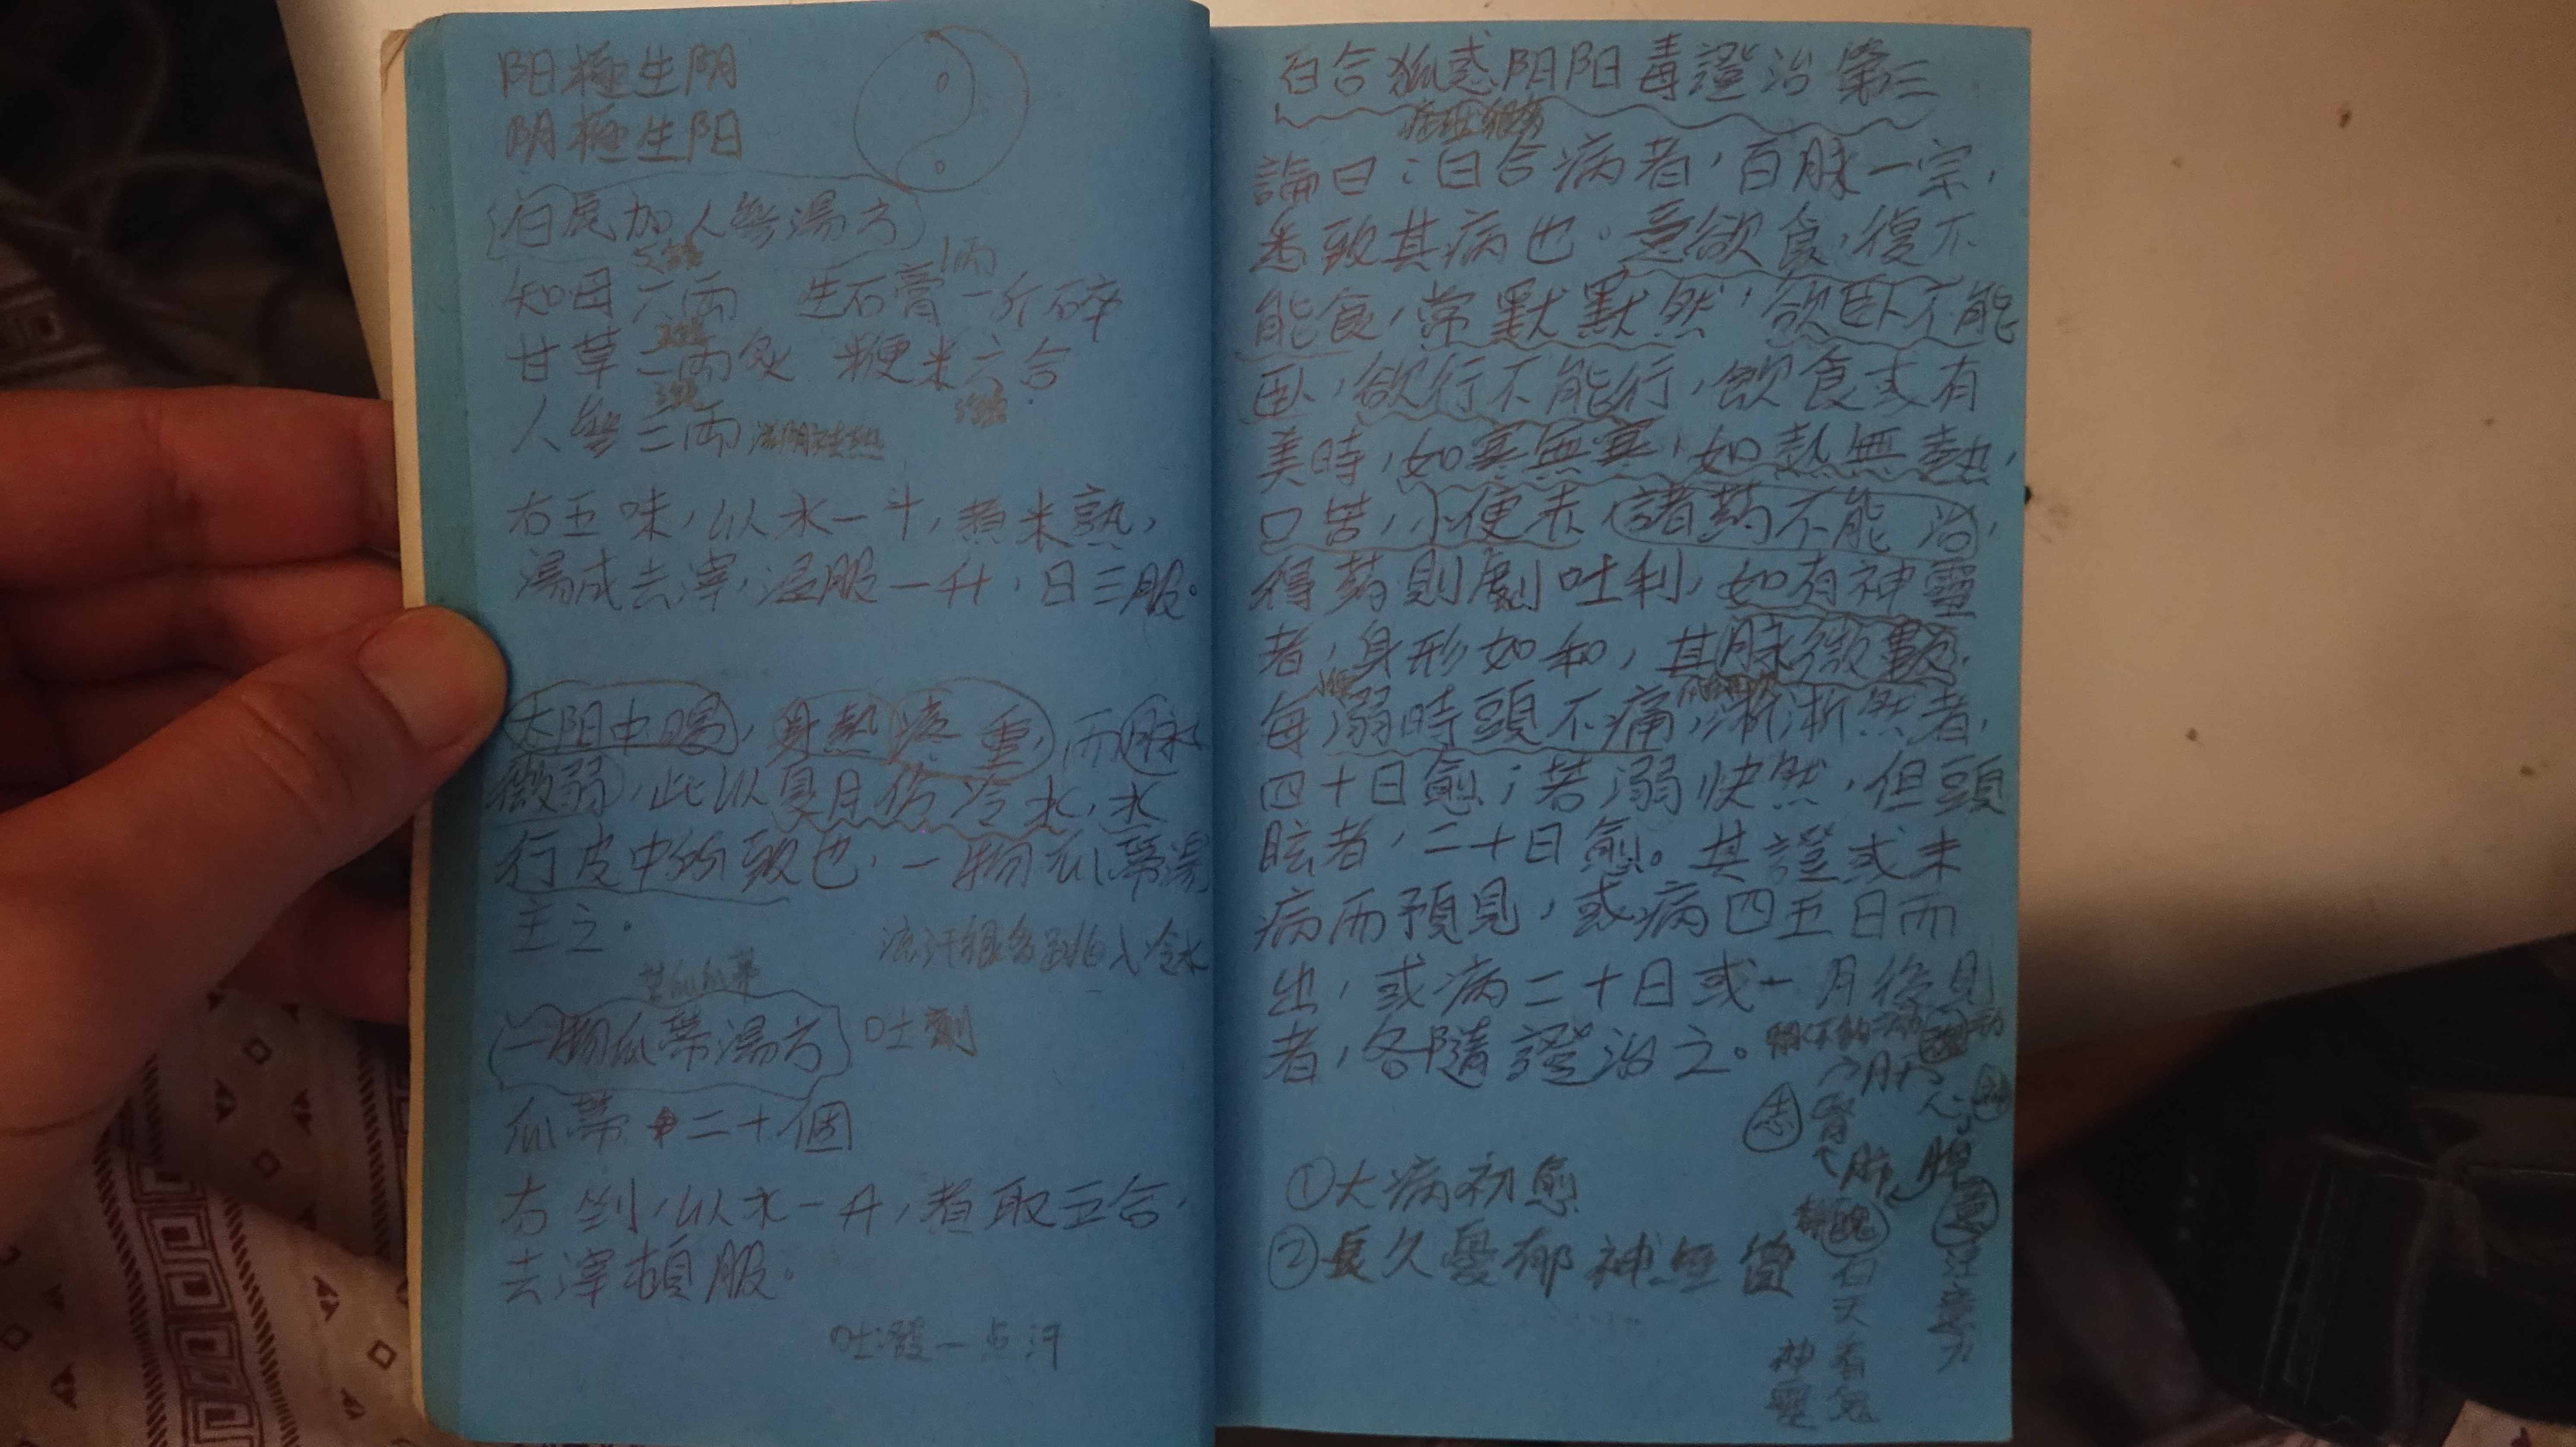 阳極生阴
阴極生阳
白虎加人參湯方
知母六兩 生石膏一斤碎
1兩
甘草二兩炙 粳米六合
人參三兩
右五味，以水一斗，煮米熟，
湯成去滓，溫服一升，日三服。
太阳中暍，身熱疼重，而脉
微弱，此以夏月伤冷水，水
行皮中所致也，一物瓜蒂湯
主之。
流汗很多跑入冷水
一物瓜蒂湯方 吐劑
瓜蒂二十個
右剉，以水一升，煮取五合，
去滓頓服。
吐後一点汗
百合狐惑阴阳毒證治第三
論曰：百合病者，百脉一宗，
悉致其病也。意欲食，復不
能食，常默默然，欲卧不能
卧，欲行不能行，飲食或有
美時，如寒無寒，如熱無熱，
口苦，小便赤，諸药不能治，
得药則劇吐利，如有神靈
者，身形如和，其脉微數，
每溺時頭不痛，淅淅然者，
四十日愈；若溺快然，但頭
眩者，二十日愈。其證或未
病而預見，或病四五日而
出，或病二十日或一月後見
者，各隨證治之。
志 腎 肝 心 神
肺 脾
魄 意
注意力
白天看鬼
神靈
①大病初愈
②長久憂郁神無